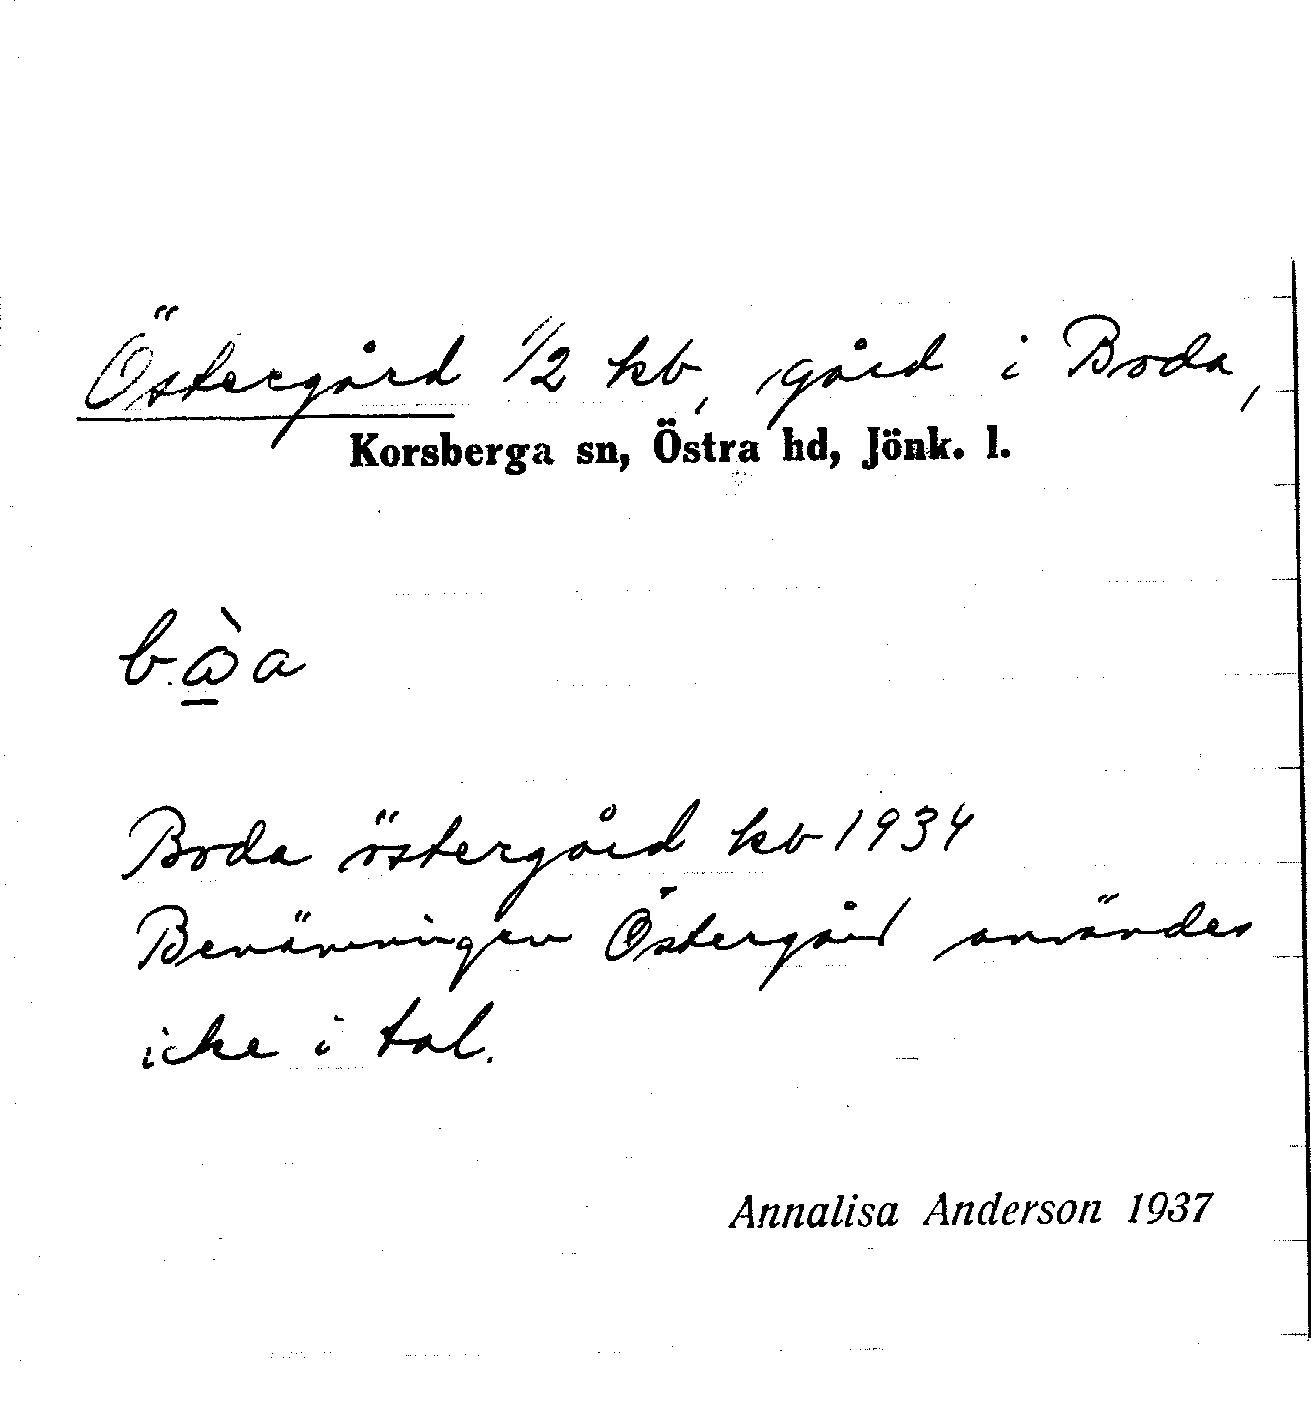 Östergård 1/2 kb, gård i Boda,
Korsberga sn, Östra hd, Jönk. l.
Boda östergård kb 1934
Benämningen Östergård användes
icke i tal.
Annalisa Anderson 1937